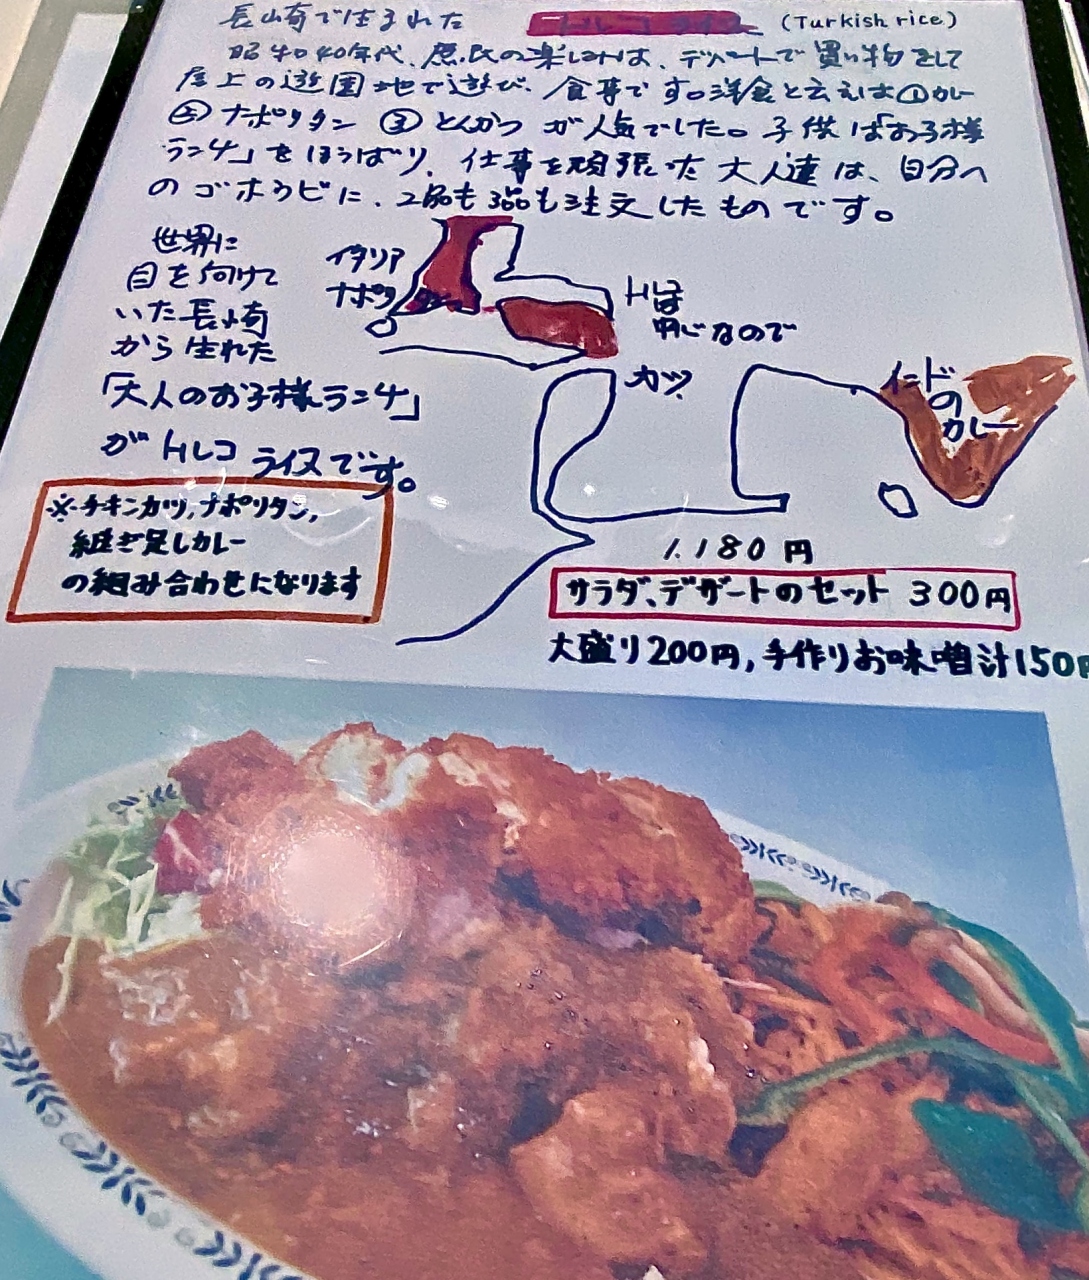 長崎で生まれた トルコライス (Turkish rice)
昭和40年代、庶民の楽しみは、デパートで買い物をして
屋上の遊園地で遊び、食事です。洋食と言えば①カレー
②ナポリタン ③とんかつ が人気でした。子供は「お子様
ランチ」をほうばり、仕事を頑張った大人達は、自分へ
のゴホウビに、2品も3品も注文したものです。
世界に
目を向けて
いた長崎
から生れた
「大人のお子様ランチ」
が トルコ ライスです。
イタリア
ナポリ
トルコは
中心なので
カツ
インド
の
カレー
※チキンカツ,ナポリタン,
継ぎ足しカレー
の組み合わせになります
1.180円
サラダ、デザートのセット 300円
大盛り200円,手作りお味噌汁150円